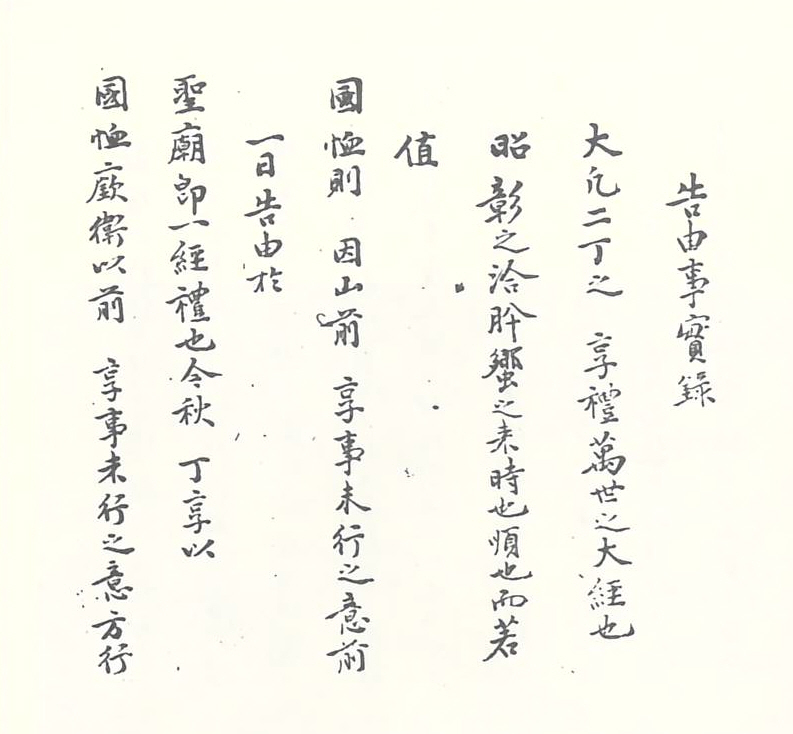 告由事實錄
大凡二丁之 享禮萬世之大經也
昭彰之洽肸蠁之來時也順也而若
值
國恤則 因山前 享事未行之意前
一日告由於
聖廟卽一經禮也今秋 丁享以
國恤廞衛以前 享事未行之意方行